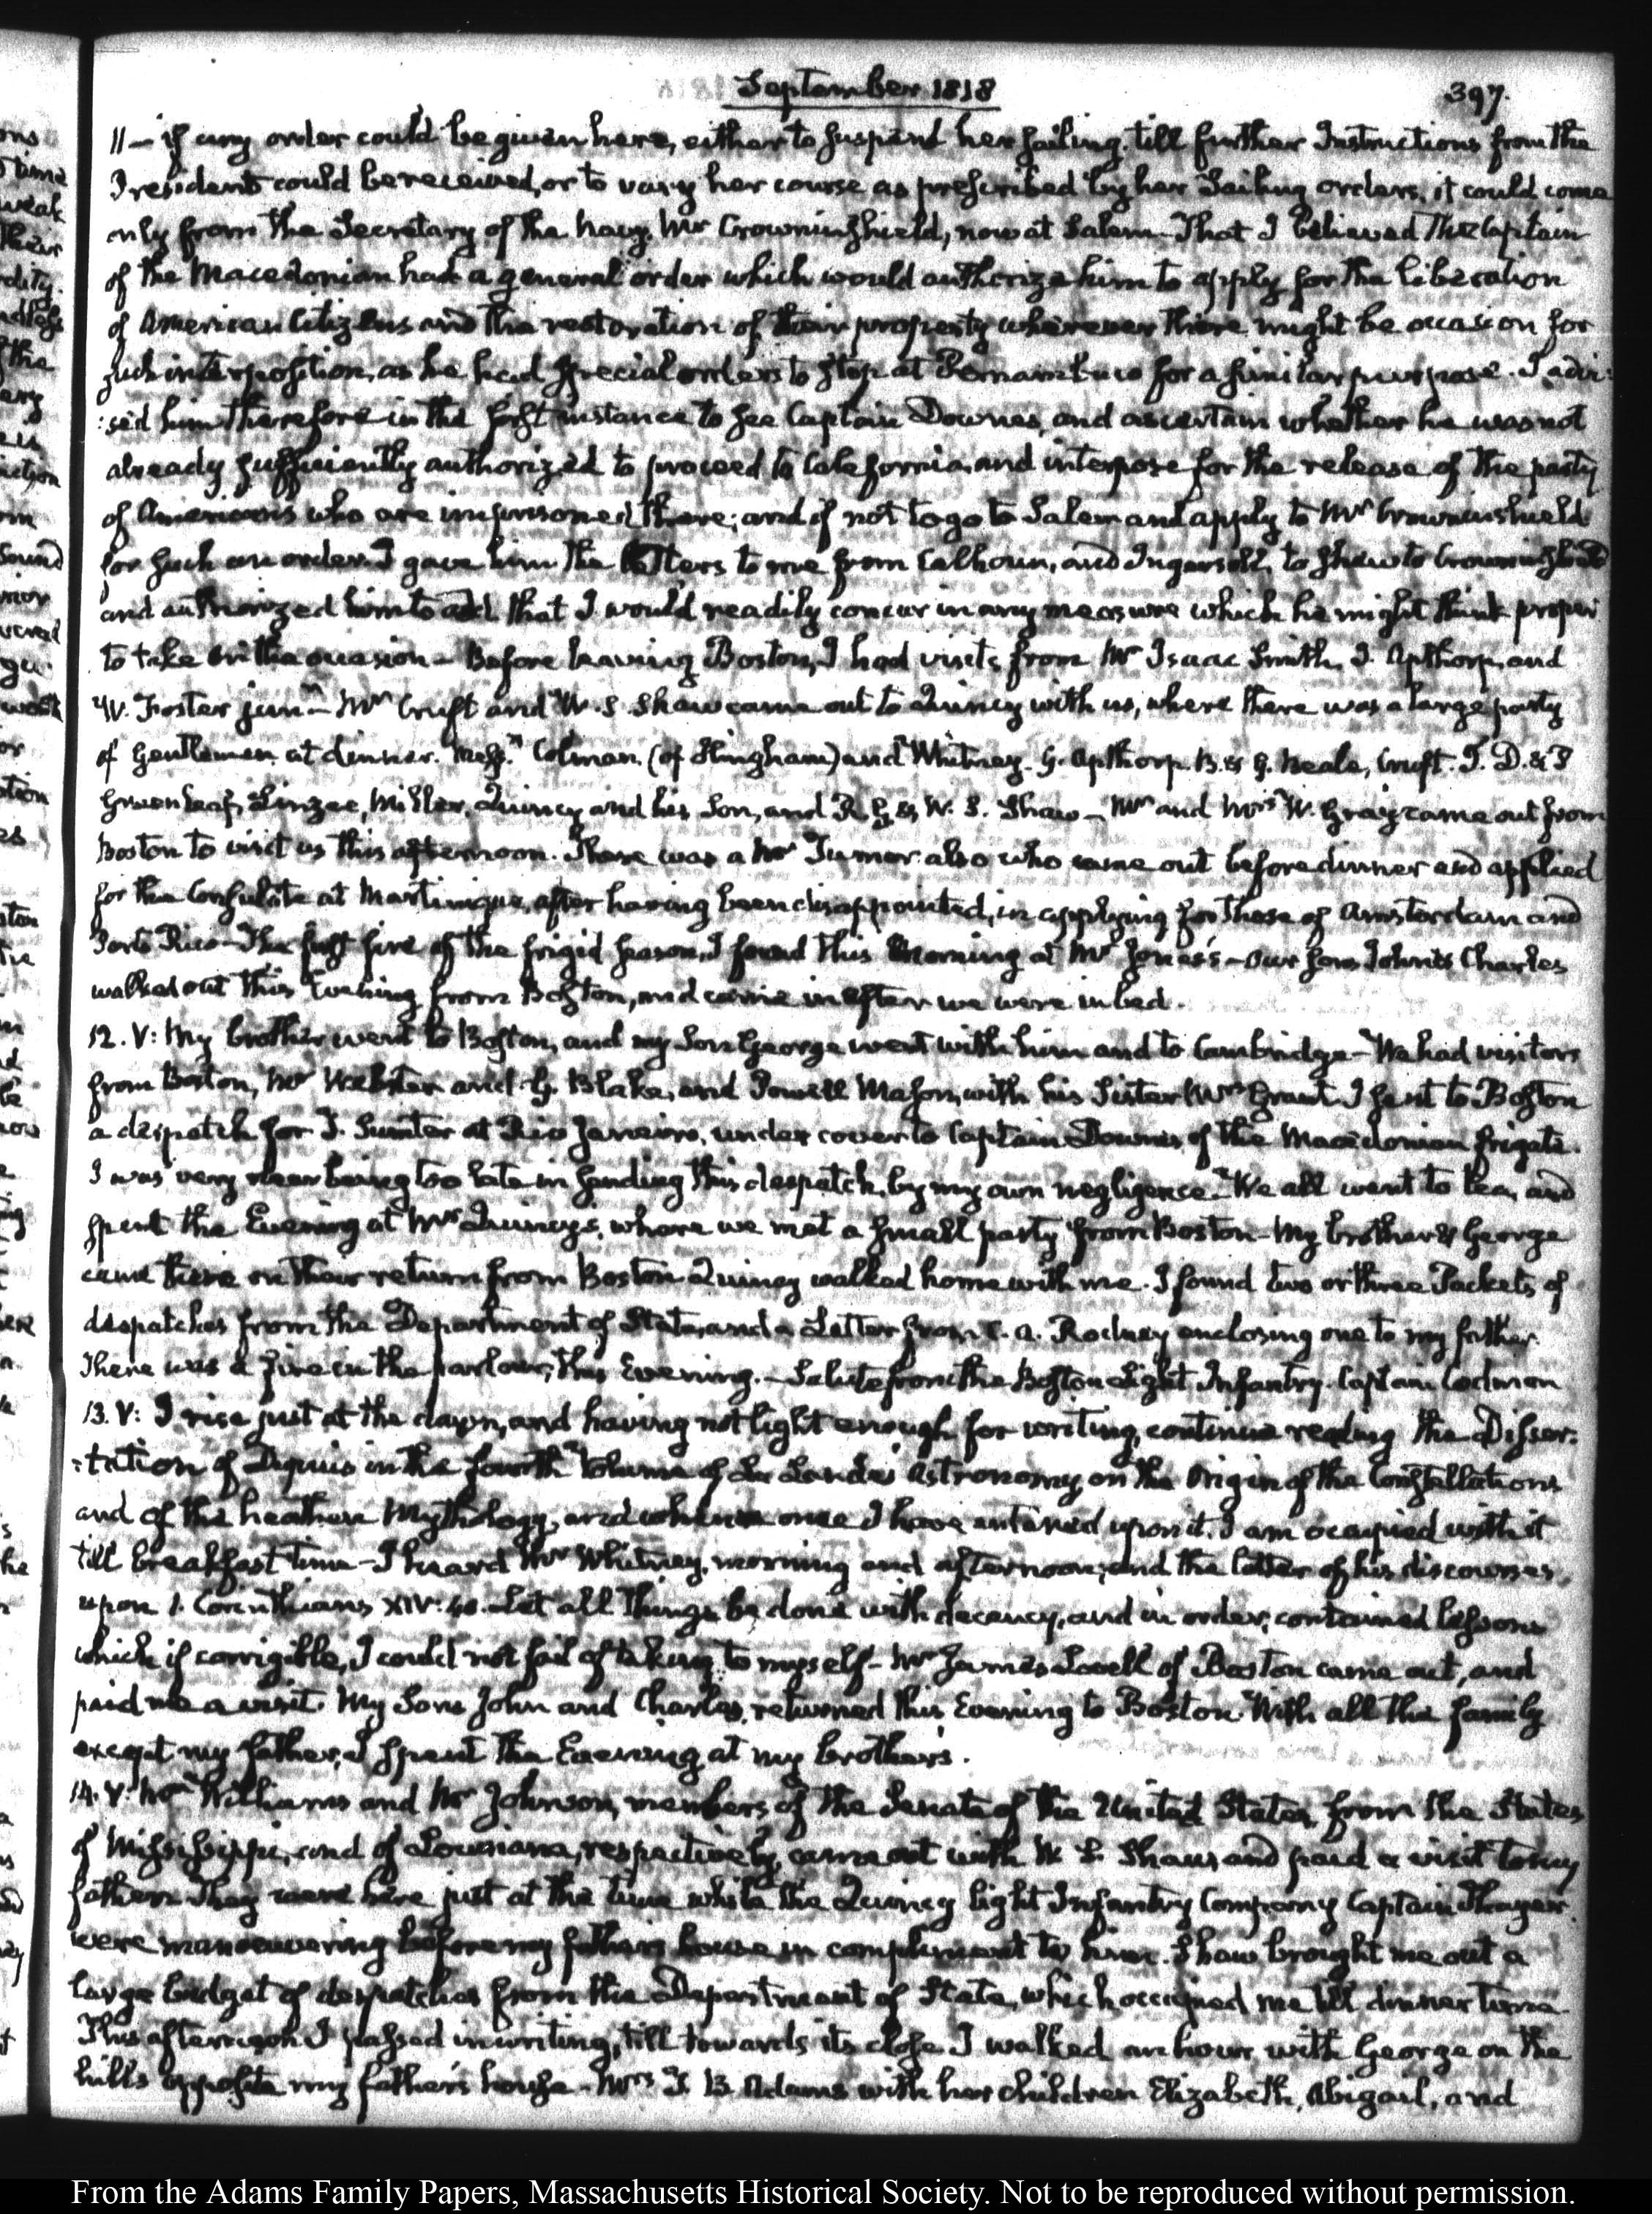 September 1818
397.
11 — if any order could be given here, either to suspend her sailing, till further Instructions from the
President could be received, or to vary her course as prescribed by her Sailing orders, it could come
only from the Secretary of the Navy, Mr Crowninshield, now at Salem — That I believed the Captain
of the Macedonian had a general order which would authorize him to apply for the liberation
of American Citizens and the restoration of their property wherever there might be occasion for
such interposition, as he had special orders to stop at Pernambuco for a similar purpose. I advi:
:sed him therefore in the first instance to see Captain Downes, and ascertain whether he was not
already sufficiently authorized to proceed to California, and interpose for the release of the party
of Americans who are imprisoned there; and if not to go to Salem and apply to Mr Crowninshield
for such an order. I gave him the Letters to me from Calhoun, and Ingersoll, to shew to Crowninshield
and authorized him to add that I would readily concur in any measure which he might think proper
to take on the occasion — Before leaving Boston, I had visits from Mr Isaac Smith, J. Apthorp, and
W. Foster junr — Mr Cruft and W. S. Shaw came out to Quincy with us, where there was a large party
of Gentlemen at dinner. Messrs Colman (of Hingham) and Whitney. G. Apthorp. B. & G. Beale, Cruft. T. D. & P
Greenleaf, Linzee, Miller, Quincy and his Son, and R. G. & W. S. Shaw — Mr and Mrs W. Gray came out from
Boston to visit us this afternoon. There was a Mr Turner also who came out before dinner and applied
for the Consulate at Martinique, after having been disappointed, in applying for those of Amsterdam and
Porto Rico — The first fire of the frigid season, I found this Morning at Mr Jones's — Our sons John & Charles
walked out this Evening from Boston, and came in after we were in bed.
12. V: My brother went to Boston, and my Son George went with him and to Cambridge — We had visitors
from Boston, Mr Webster and G. Blake, and Powell Mason, with his Sister Mrs Grant. I sent to Boston
a despatch for T. Sumter at Rio Janeiro, under cover to Captain Downes, of the Macedonian frigate.
I was very near being too late in sending this despatch, by my own negligence — We all went to tea, and
spent the Evening at Mr Quincy's, where we met a small party from Boston — My brother & George
came there on their return from Boston. Quincy walked home with me. I found two or three Packets of
despatches from the Department of State, and a Letter from C. A. Rodney enclosing one to my father.
There was a fire in the parlour, this Evening. — Salute from the Boston Light Infantry. Captain Codman
13. V: I rise just at the dawn, and having not light enough for writing, continue reading the Disser:
:tation of Dupuis in the fourth Volume of La Lande's Astronomy, on the Origin of the Constellations
and of the heathen Mythology, and when once I have entered upon it, I am occupied with it
till breakfast time — I heard Mr Whitney, morning and afternoon; and the latter of his discourses,
upon 1. Corinthians XIV: 40. Let all things be done with decency, and in order, contained lessons
which if corrigible, I could not fail of taking to myself — Mr James Lovell of Boston came out, and
paid me a visit. My Sons John and Charles, returned this Evening to Boston. With all the family
except my father, I spent the Evening at my brother's.
14. V: Mr Williams and Mr Johnson, members of the Senate of the United States, from the States
of Mississippi, and of Louisiana, respectively, came out with W. S. Shaw, and paid a visit to my
father. They were here just at the time while the Quincy light Infantry Company Captain Thayer
were manoeuvering before my father's house in compliment to him. Shaw brought me out a
large budget of despatches from the Department of State, which occupied me till dinner time.
This afternoon I passed in writing, till towards its close I walked an hour with George on the
hills opposite my father's house — Mrs T. B. Adams with her children Elizabeth, Abigail, and
From the Adams Family Papers, Massachusetts Historical Society. Not to be reproduced without permission.